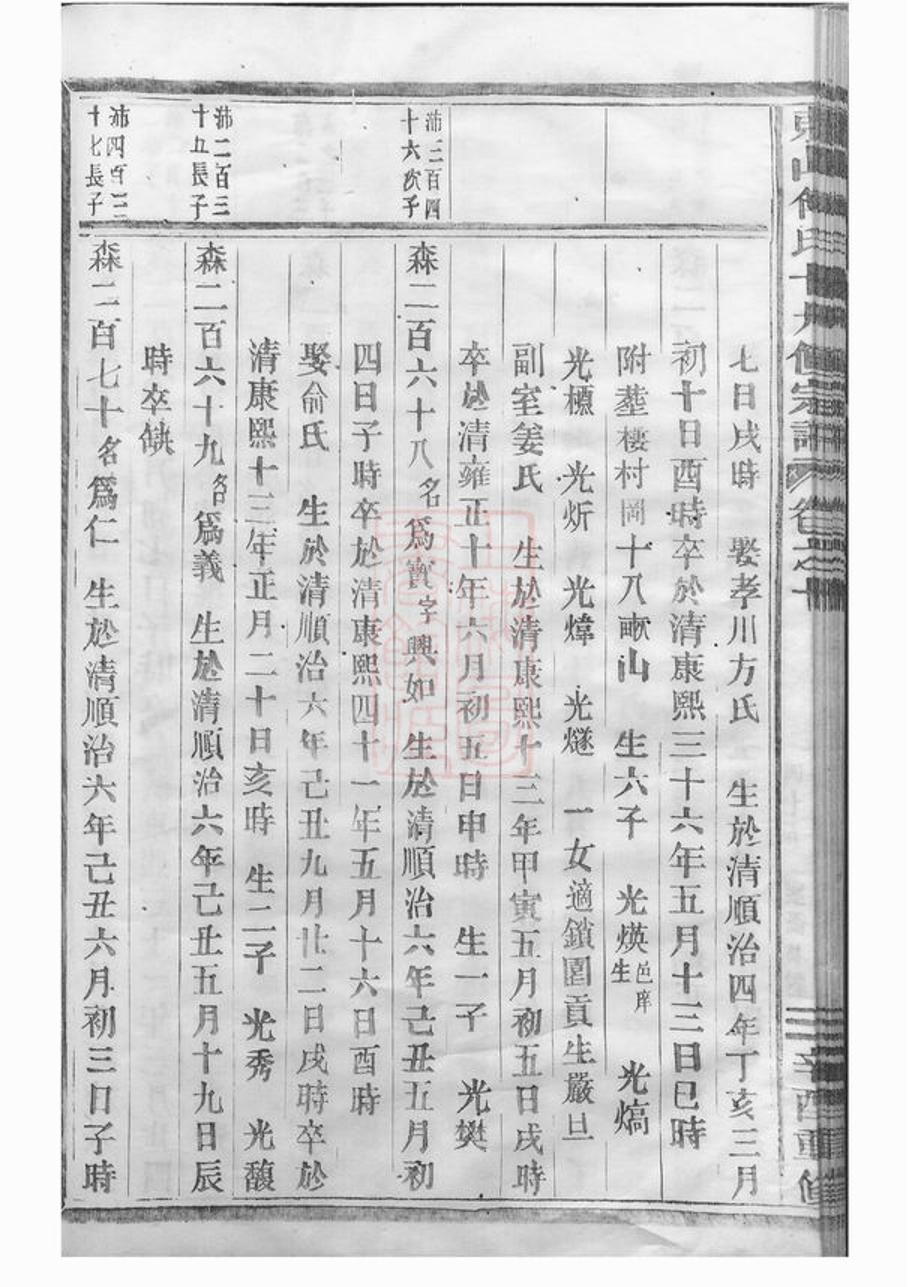 七日戌時 娶孝川方氏 生於清順治四年丁亥三月
初十日酉時卒於清康熙三十六年五月十三日巳時
附塟棲村岡十八畝山 生六子 光煐邑庠生 光熇
光櫄 光炘 光煒 光燧 一女適鎖園貢生嚴旦
副室姜氏 生於清康熙十三年甲寅五月初五日戌時
卒於清雍正十年六月初五日申時 生一子 光樊
沛三百四十六次子
森二百六十八名爲實字興如 生於清順治六年己丑五月初
四日子時卒於清康熙四十一年五月十六日酉時
娶俞氏 生於清順治六年己丑九月廿二日戌時卒於
清康熙十三年正月二十日亥時 生二子 光秀 光馥
沛二百三十五長子
森二百六十九名爲義 生於清順治六年己丑五月十九日辰
時卒缺
沛四百二十七長子
森二百七十名爲仁 生於清順治六年己丑六月初三日子時